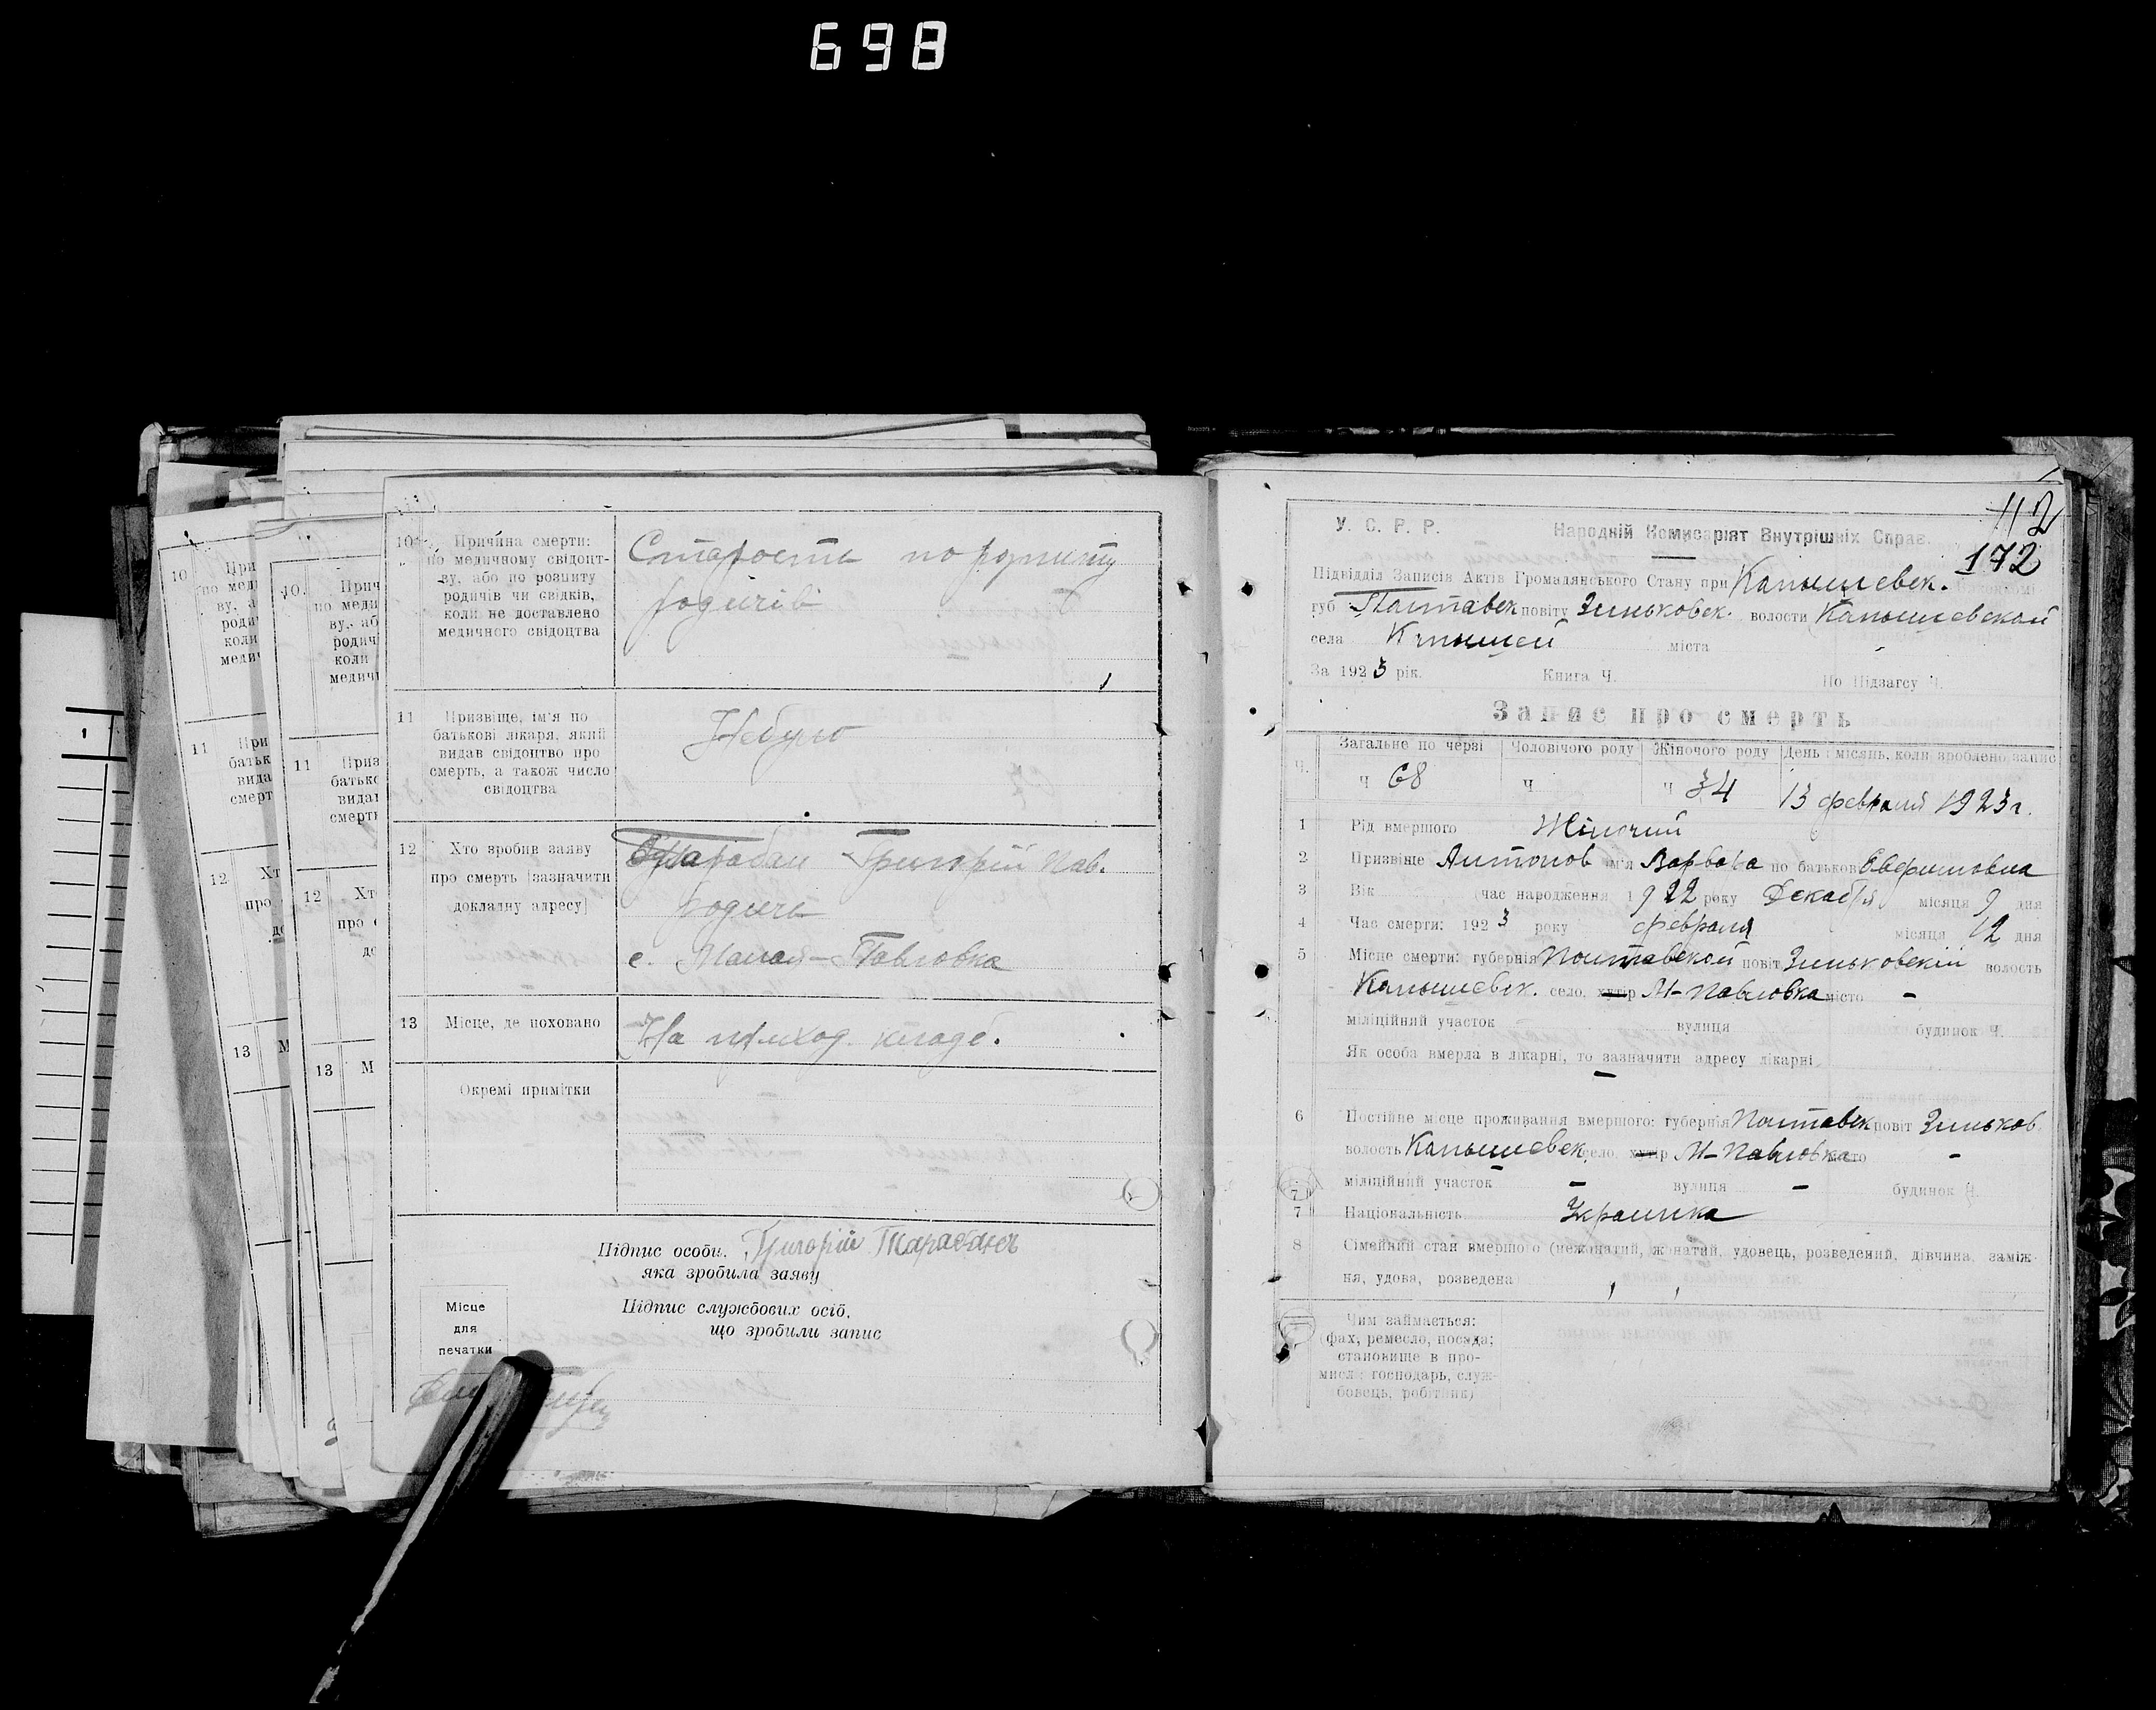 698
10
Причина смерти:
по медичному свідоцт-
ву, або по розпиту
родичів чи свідків,
коли не доставлено
медичного свідоцтва
Старость по розпиту
родичів
11
Призвіще, ім'я по
батькові лікаря, який
видав свідоцтво про
смерть, а також число
свідоцтва
Небуло
12
Хто зробив заяву
про смерть [зазначити
докладну адресу]
Тарабан Григорій Пав.
родичь
с. Малая-Павловка
13
Місце, де поховано
На приход. кладб.
Окремі примітки
Підпис особи, Григорій Тарабанъ
яка зробила заяву
Підпис службових осіб,
що зробили запис
Місце
для
печатки
10
При
по меди
ву, а
роди
коли
медич
11
При
батьк
вида
смерт
12
Хт
про
до
13
М
10.
Прич
по меди
ву, аб
родич
коли
медичн
11
Приз
батько
видат
смерти
12
Хто
про с
до
13
М
112
172
У. С. Р. Р.
Народній Комисаріят Внутрішніх Справ.
Підвідділ Записів Актів Громадянського Стану при Капышевск.
губ Полтавск повіту Зиньковск. волости Капышевской
села Капышей міста
За 1923 рік. Книга Ч. По Підзагсу Ч.
Запис про смерть
Ч.
Загальне по черзі
Чоловічого роду
Жіночого роду
День і місяць, коли зроблено запис
Ч 68
Ч
Ч 34
13 февраля 1923 г.
1 Рід вмершого Жіночий
2 Призвіще Антонов ім'я Варвара по батькові Евфимовна
3 Вік (час народження 1922 року Декабря місяця 9 дня
4 Час смерти: 1923 року февраля місяця 12 дня
5 Місце смерти: губернія Полтавской повіт Зиньковскій волость
Капышевск. село, хутір М-Павловка місто -
міліційний участок вулиця будинок Ч.
Як особа вмерла в лікарні, то зазначити адресу лікарні
-
6 Постійне місце проживання вмершого: губернія Полтавск повіт Зиньков.
волость Капышевск. село, хутір М-Павловка місто -
міліційний участок - вулиця - будинок Ч.
7
7 Національність Украинка
8 Сімейний стан вмершого (нежонатий, жонатий, удовець, розведений, дівчина, заміж-
ня, удова, розведена
Чим займається:
(фах, ремесло, посада;
становище в про-
мислі: господарь, служ-
бовець, робітник)